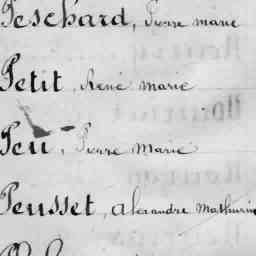 Peschard, Pierre marie
Petit, René marie
Peu, Pierre Marie
Peusset, Alexandre Mathurin